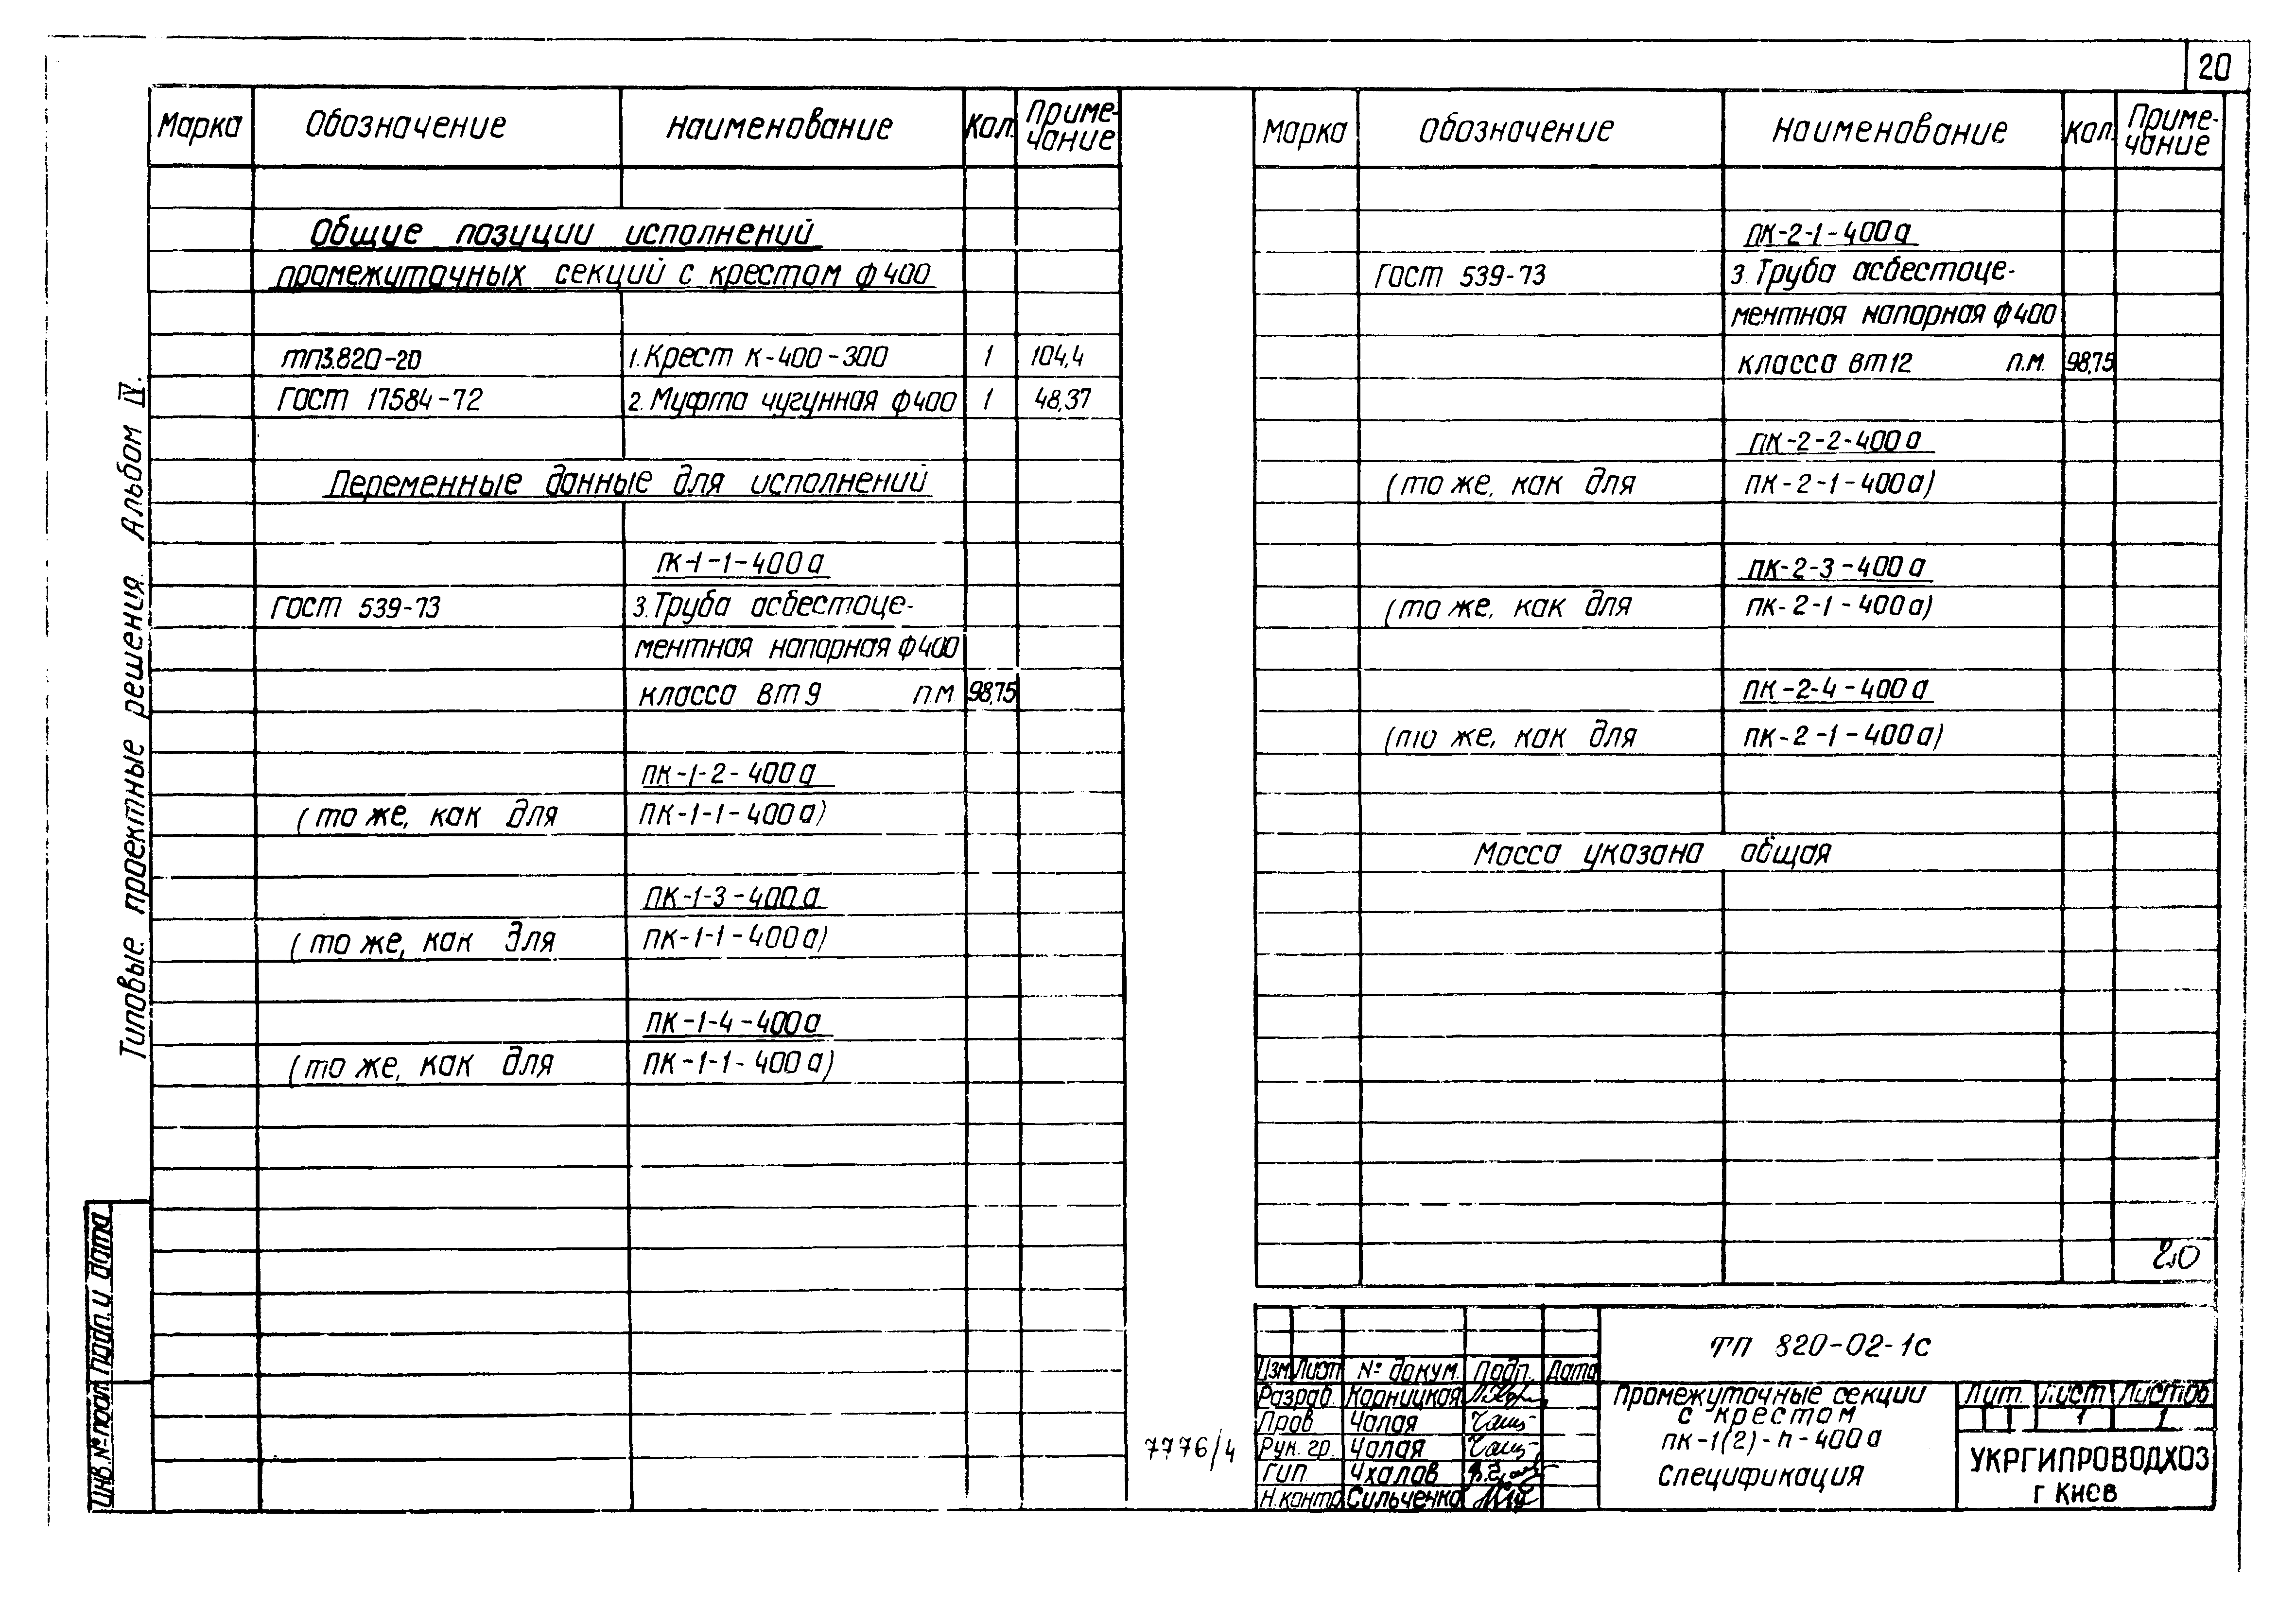 20
Типовые проектные решения. Альбом IV.
Марка Обозначение Наименование Кол. Приме-
чание
Общие позиции исполнений
промежуточных секций с крестом ф400
ТП3.820-20 1. Крест К-400-300 1 104,4
ГОСТ 17584-72 2. Муфта чугунная ф400 1 48,37
Переменные данные для исполнений
ПК-1-1-400а
ГОСТ 539-73 3. Труба асбестоце-
ментная напорная ф400
класса ВТ9 п.м 98,75
ПК-1-2-400а
(то же, как для ПК-1-1-400а)
ПК-1-3-400а
(то же, как для ПК-1-1-400а)
ПК-1-4-400а
(то же, как для ПК-1-1-400а)
Марка Обозначение Наименование Кол. Приме-
чание
ПК-2-1-400а
ГОСТ 539-73 3. Труба асбестоце-
ментная напорная ф400
класса ВТ12 п.м. 98,75
ПК-2-2-400а
(то же, как для ПК-2-1-400а)
ПК-2-3-400а
(то же, как для ПК-2-1-400а)
ПК-2-4-400а
(то же, как для ПК-2-1-400а)
Масса указана общая
20
Инв. № подл. Подп. и дата
7776/4
ТП 820-02-1с
Изм Лист № докум. Подп. Дата
Разраб. Корницкая
Пров Чалая
Рук. гр. Чалая
ГИП Чхалов
Н.контр Сильченко
Промежуточные секции
с крестом
ПК-1(2)-п-400а
Спецификация
Лит. Лист Листов
1 1
УКРГИПРОВОДХОЗ
г Киев